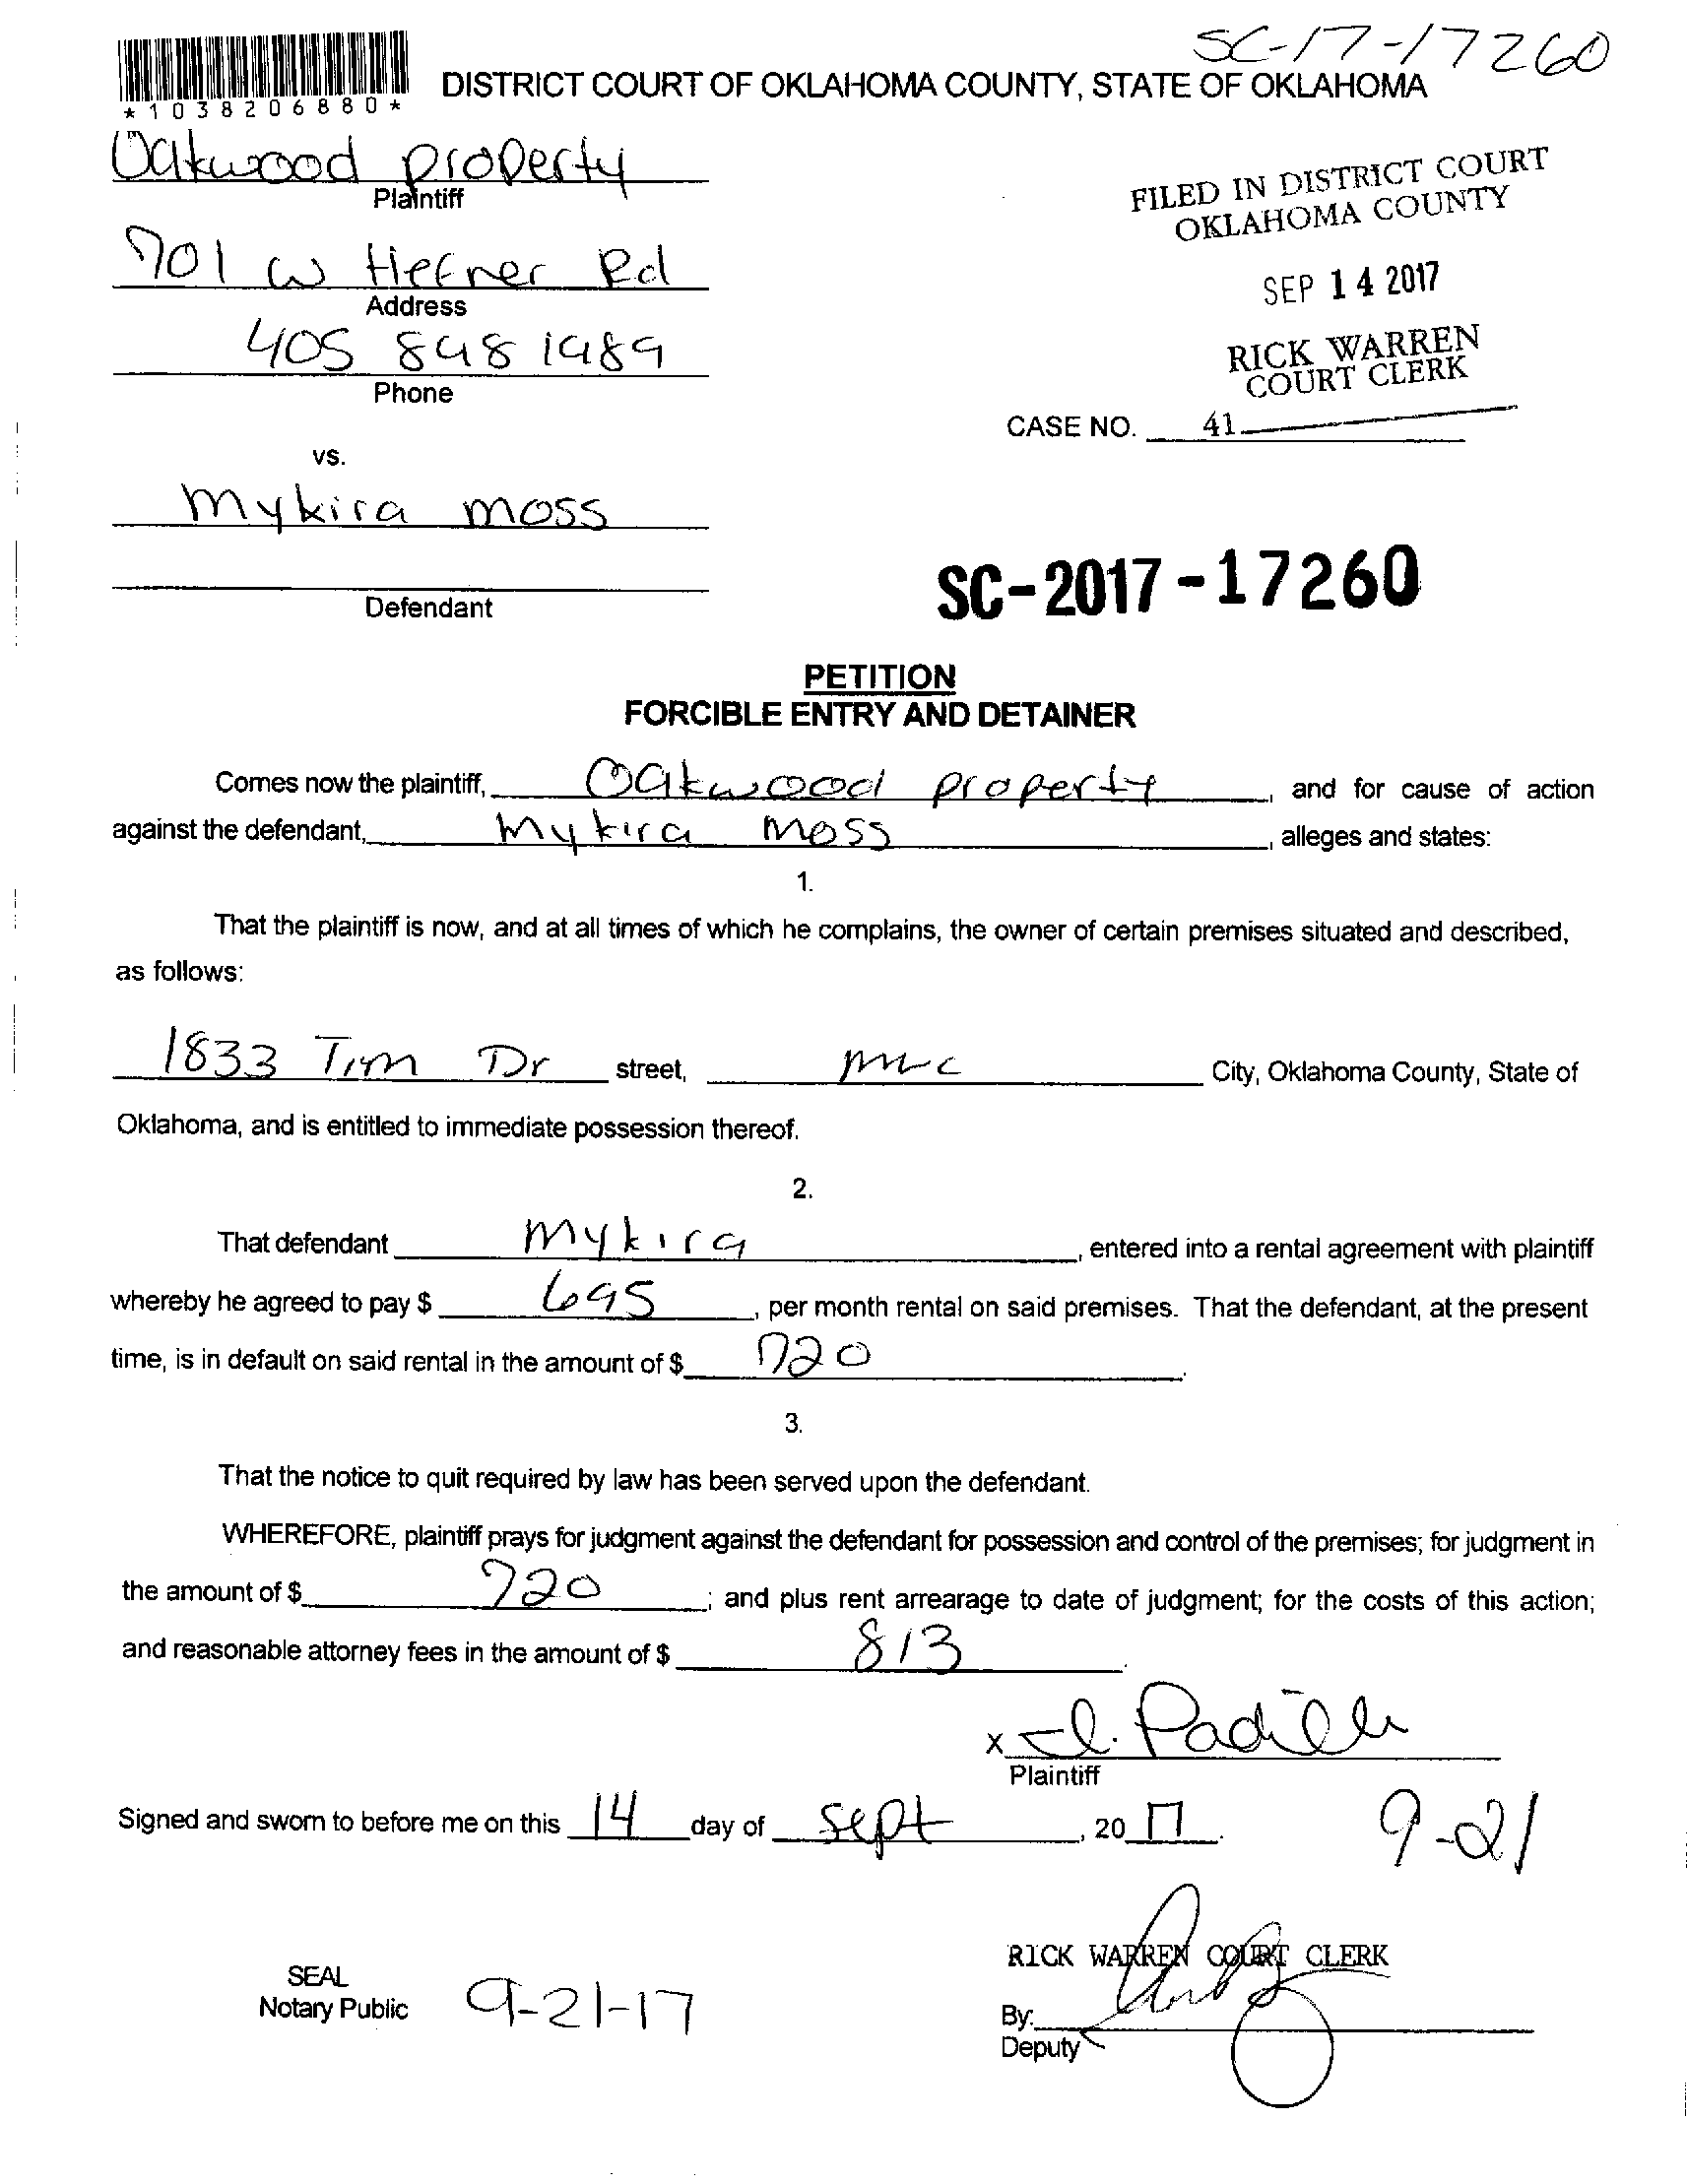 SC-17-17260
*1038206880*
DISTRICT COURT OF OKLAHOMA COUNTY, STATE OF OKLAHOMA
Oakwood property
Plaintiff
FILED IN DISTRICT COURT
OKLAHOMA COUNTY
701 W Hefner Rd
Address
SEP 14 2017
405 848 1989
Phone
RICK WARREN
COURT CLERK
CASE NO. 41
vs.
Mykira Moss
Defendant
SC-2017-17260
PETITION
FORCIBLE ENTRY AND DETAINER
Comes now the plaintiff, Oakwood property, and for cause of action
against the defendant, Mykira Moss, alleges and states:
1.
That the plaintiff is now, and at all times of which he complains, the owner of certain premises situated and described,
as follows:
1833 Tim Dr street, City, Oklahoma County, State of
Oklahoma, and is entitled to immediate possession thereof.
2.
That defendant Mykira, entered into a rental agreement with plaintiff
whereby he agreed to pay $ 695, per month rental on said premises. That the defendant, at the present
time, is in default on said rental in the amount of $ 720.
3.
That the notice to quit required by law has been served upon the defendant.
WHEREFORE, plaintiff prays for judgment against the defendant for possession and control of the premises; for judgment in
the amount of $ 720; and plus rent arrearage to date of judgment; for the costs of this action;
and reasonable attorney fees in the amount of $ 813.
x I. Padilla
Plaintiff
Signed and sworn to before me on this 14 day of Sept, 20 17.
9-21
RICK WARREN COURT CLERK
SEAL
Notary Public
9-21-17
By:
Deputy